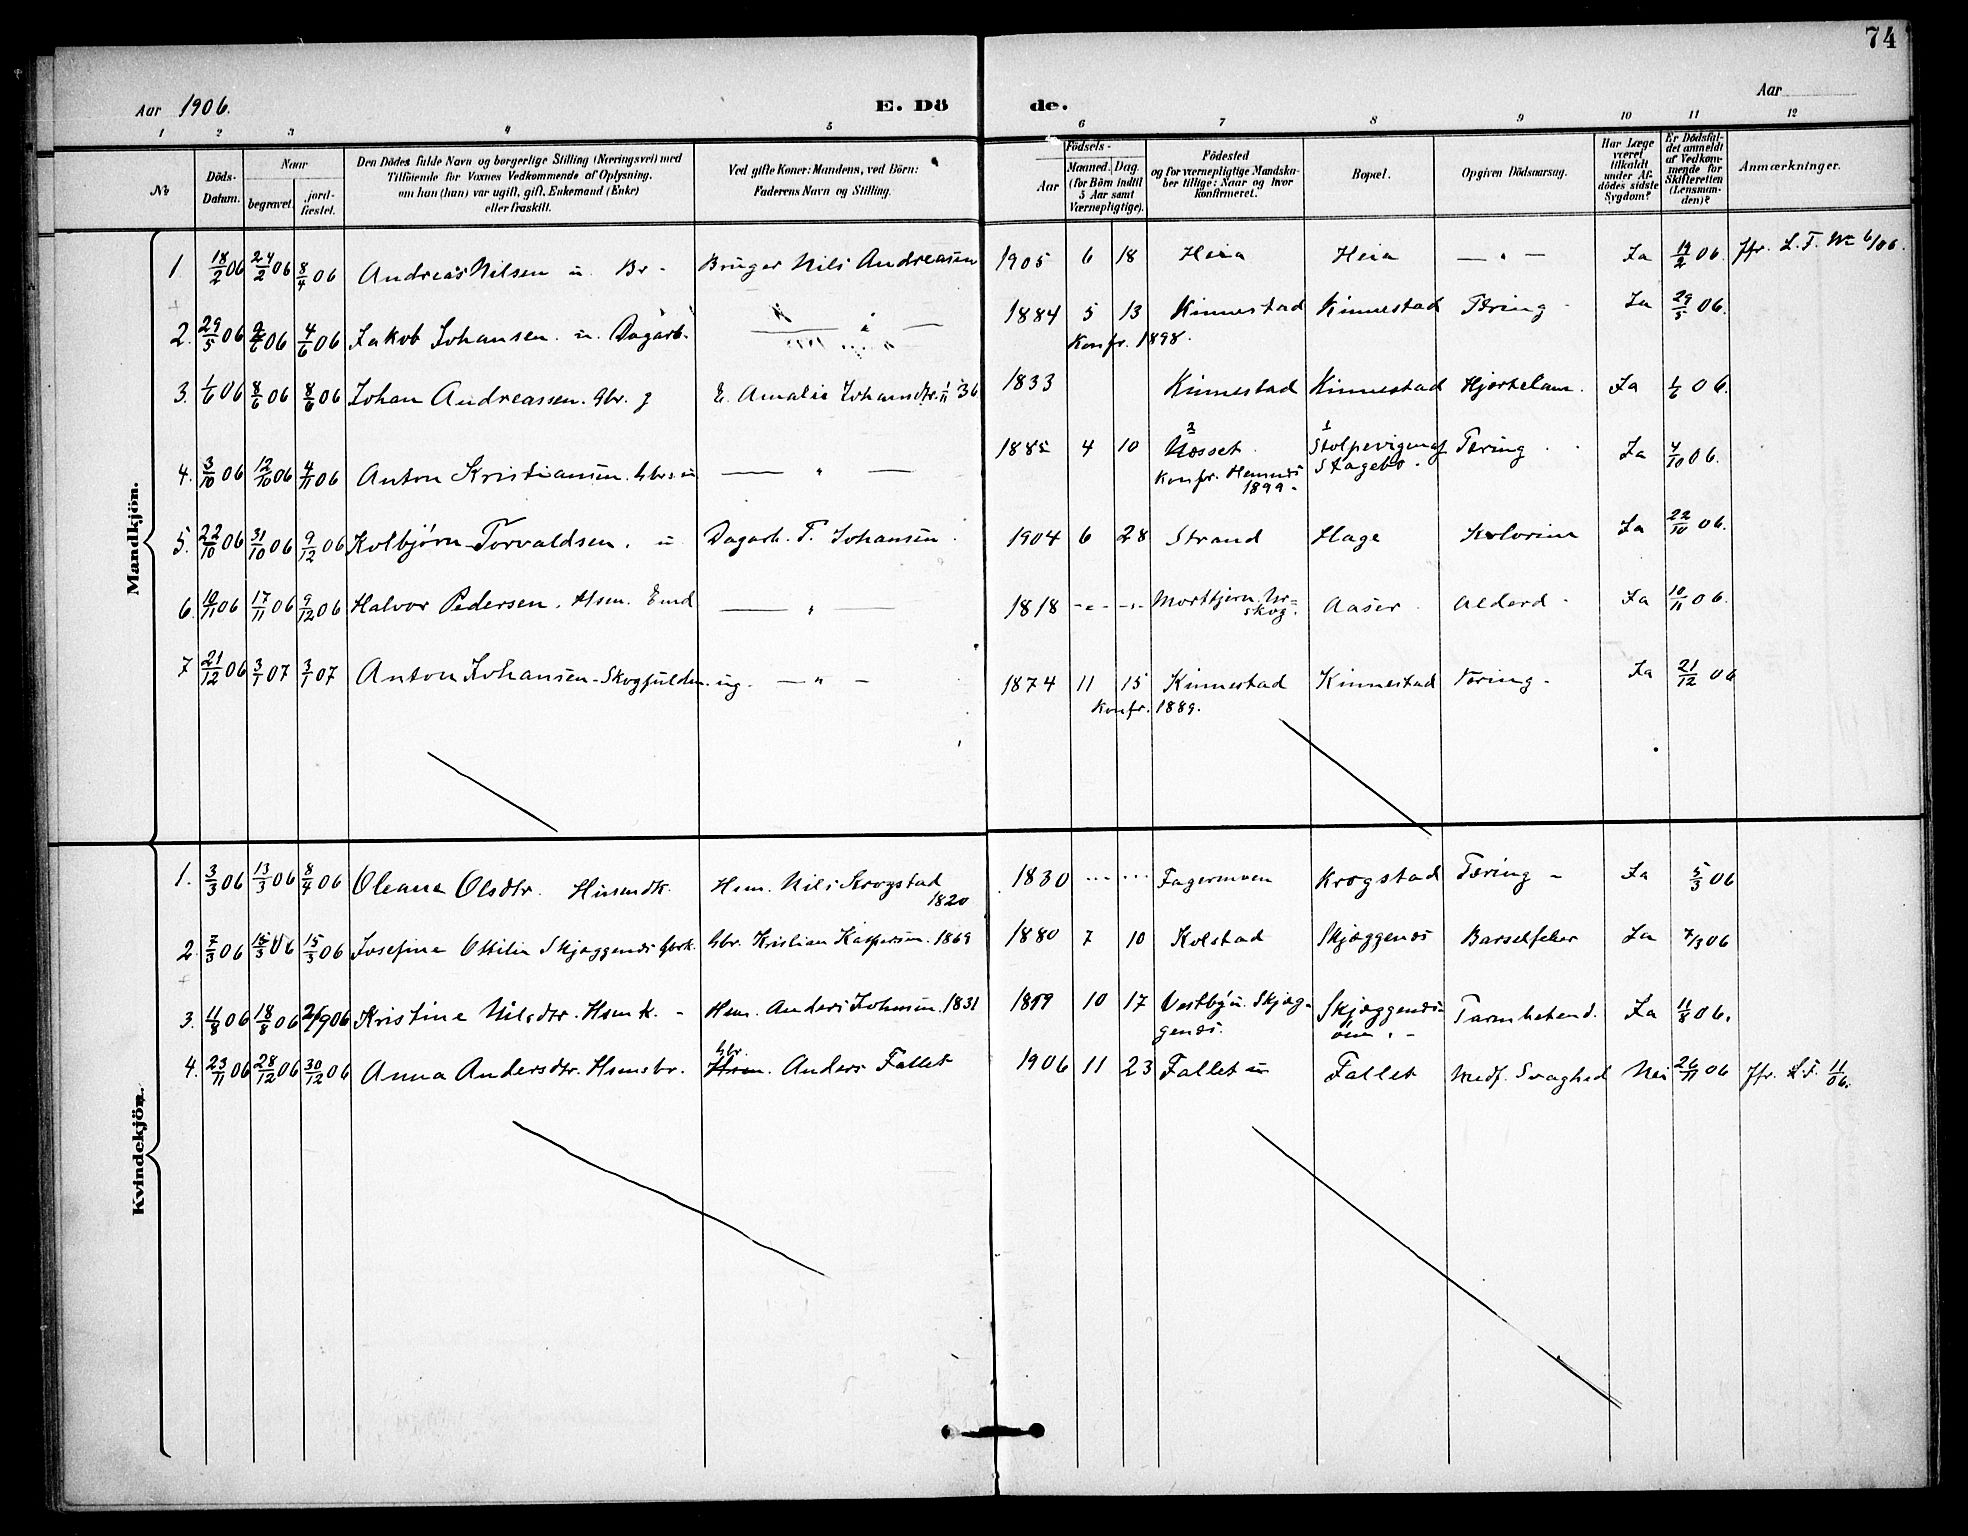 74
Aar 1906. E. Dö de. Aar
1 2 3 4 5 6 7 8 9 10 11 12
No
Döds-Datum.
Naar
begravet.
jord-fæstet.
Den Dödes fulde Navn og borgerlige Stilling (Næringsvei) med
Tilföiende for Voxnes Vedkommende af Oplysning,
om han (hun) var ugift, gift, Enkemand (Enke)
eller fraskilt.
Ved gifte Koner: Mandens, ved Börn:
Faderens Navn og Stilling.
Födsels-
Aar
Maaned. Dag.
(for Börn indtil
3 Aar samt
Værnepligtige).
Födested
og for værnepligtige Mandska-
ber tillige: Naar og hvor
konfirmeret.
Bopæl.
Opgiven Dödsaarsag.
Har Læge
været
tilkaldt
under Af-
dödes sidste
Sygdom?
Er Dödsfal-
det anmeldt
af Vedkom-
mende for
Skifteretten
(Lensman-
den)?
Anmærkninger.
Mandkjön.
1. 18/2 06 24/2 06 8/4 06 Andreas Nilsen u. Br - Bruger Nils Andreasen 1905 6 18 Heia Heia — " — Ja 19/2 06. Jfr. L. F. No 6/06.
2. 29/5 06 06 4/6 06 Jakob Johansen. u. Dagarb. — " — 1884 5 13 Kinnestad Kinnestad Tæring - Ja 29/5 06.
Konfr. 1898.
3. 1/6 06 8/6 06 8/6 06 Johan Andreassen. Gbr. g E. Amalie Johansdtr. 1/11 36 1833 Kinnestad Kinnestad Hjertelam. Ja 1/6 06.
4. 3/10 06 12/10 06 4/11 06 Anton Kristiansen. Gbrs. u — " — 1885 4 10 Næsset. Stolpevigen af Tæring. Ja 4/10 06.
Konfr. Hemnes Stagebø.
1899.
5. 22/10 06 31/10 06 9/12 06 Kolbjørn Torvaldsen. u Dagarb. T. Johansen. 1904 6 28 Strand Hage Kolerine Ja 22/10 06.
6. 10/11 06 17/11 06 9/12 06 Halvor Pedersen. Hsm. Emd — " — 1818 - " - - " - Mortkjern. Ur= Aaser. Alderd - Ja 10/11 06.
skog.
7 21/12 06 3/1 07 3/1 07 Anton Johansen - Skogfuldm. ug. — " — 1874 11 15 Kinnestad Kinnestad Tæring - Ja 21/12 06
Konfr. 1889.
Kvindekjön.
1. 3/3 06 13/3 06 8/4 06 Oleana Olsdtr. Husmdk. Hsm. Nils Krogstad 1830 ... ... Fagermoen Krogstad Tæring - Ja 5/3 06
1820
2. 7/3 06 15/3 06 15/3 06 Josefine Ottilie Skjæggenæs Gbrk. Gbr. Kristian Kaspersen. 1869 1880 7 10 Kolstad Skjæggenæs Barselfeber Ja 7/3 06
3. 11/8 06 18/8 06 2/9 06 Kristine Nilsdtr. Hsmk. - Hsm. Anders Johnsen. 1831 1819 10 17 Vestby u. Skjæg- Skjæggenæs- Tarmbetend. Ja 11/8 06.
genæs.
4. 23/11 06 28/12 06 30/12 06 Anna Andersdtr. Hsmsbr. Gbr. Hsm. Anders Fallet 1906 11 23 Fallet Fallet Medf. Svaghed Nei 26/11 06 Jfr. L. F. 11/06.